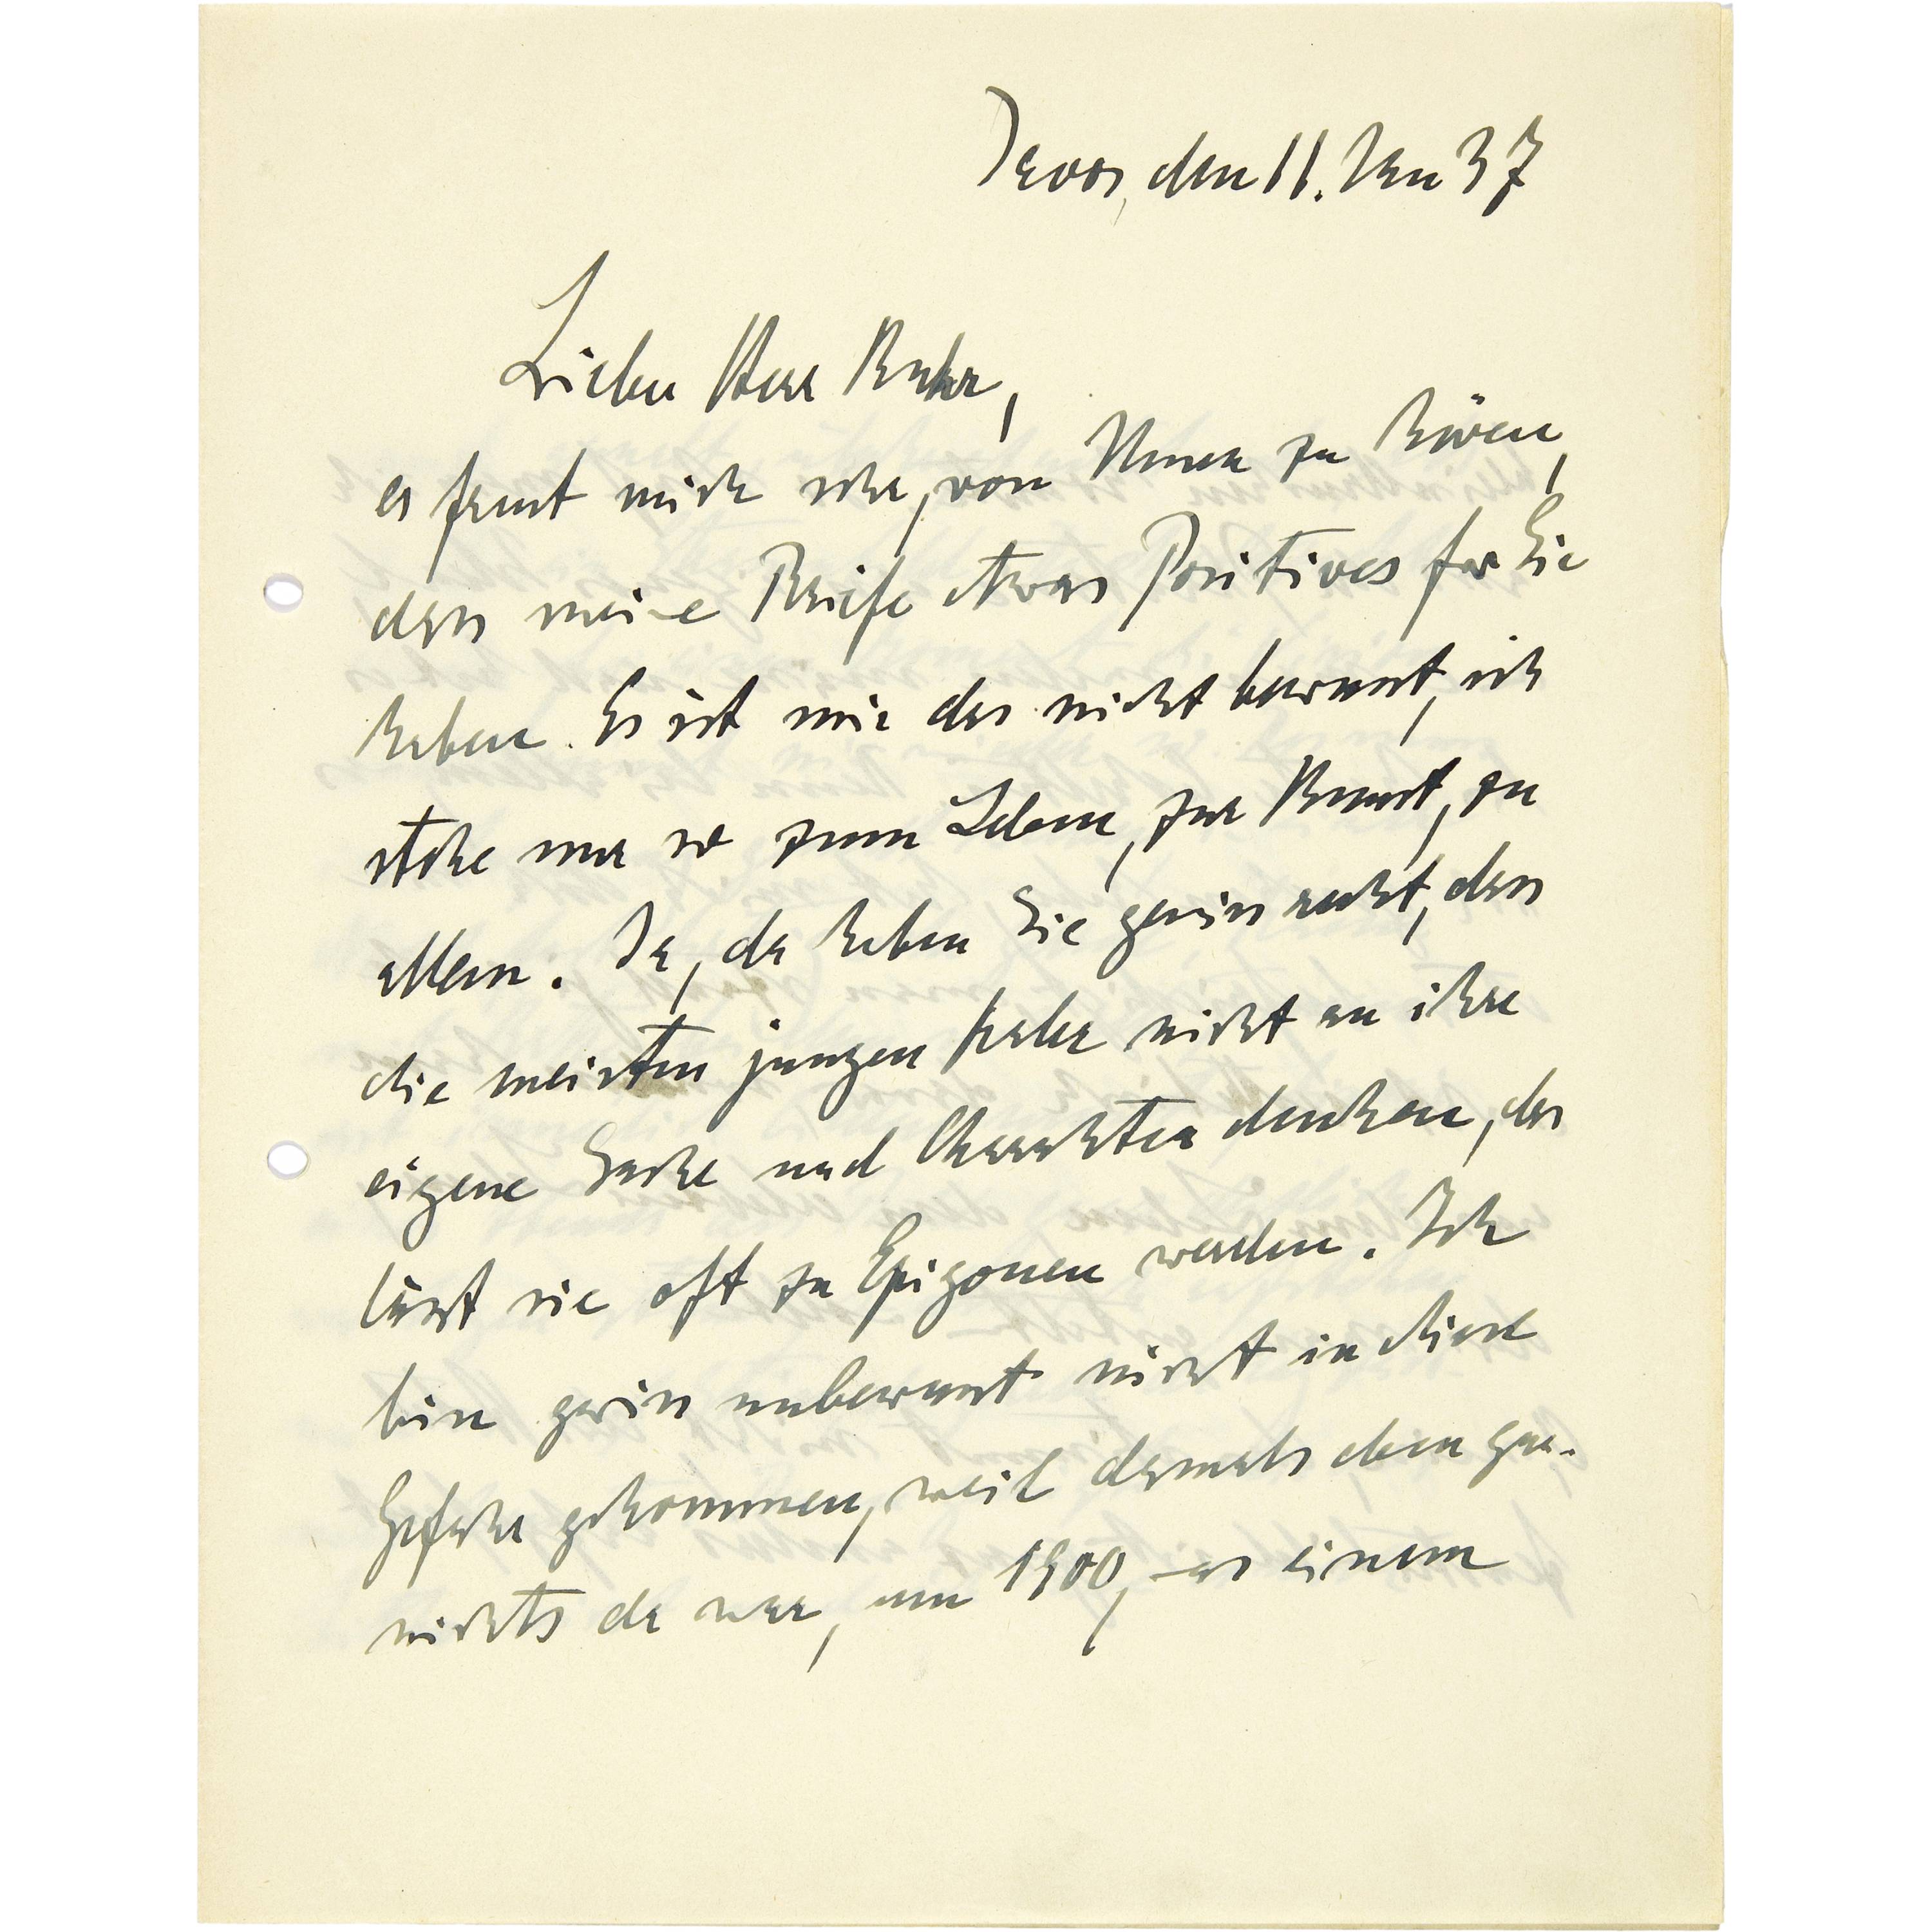 Davos, den 11. Jan 37
Lieber Herr Ruhr,
es freut mich sehr, von Ihnen zu hören,
dass meine Briefe etwas Positives für Sie
haben. Es ist mir das nicht bewusst, ich
stehe nur so zum Leben, zur Kunst, zu
allem. Ja, da haben Sie gewiss recht, dass
die meisten jungen Maler nicht an ihre
eigene Sache und Charakter denken, das
lässt sie oft zu Epigonen werden. Ich
bin gewiss unbewusst nicht in diese
Gefahr gekommen, weil damals eben gar
nichts da war, um 1900, was einem